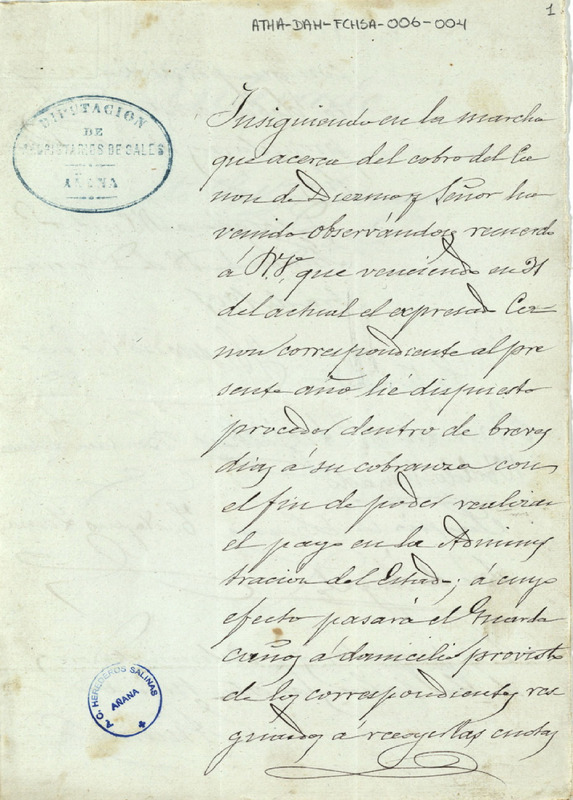 ATHA-DAH-FCHSA-006-004
1
DIPUTACION
DE
PROPIETARIOS DE SALES
AÑANA
Insiguiendo en la marcha
que acerca del cobro del Ca
non de Diezmo y Señor ha
venido observándose recuerdo
á V.V. que venciendo en 31
del actual el expresado Ca-
non correspondiente al pre
sente año hé dispuesto
proceder dentro de breves
dias á su cobranza con
el fin de poder realizar
el pago en la Adminis
tracion del Estado; á cuyo
efecto pasará el Guarda
caños á domicilio provisto
de los correspondientes res
guardos á recoger las cuotas
HEREDEROS SALINAS
AÑANA